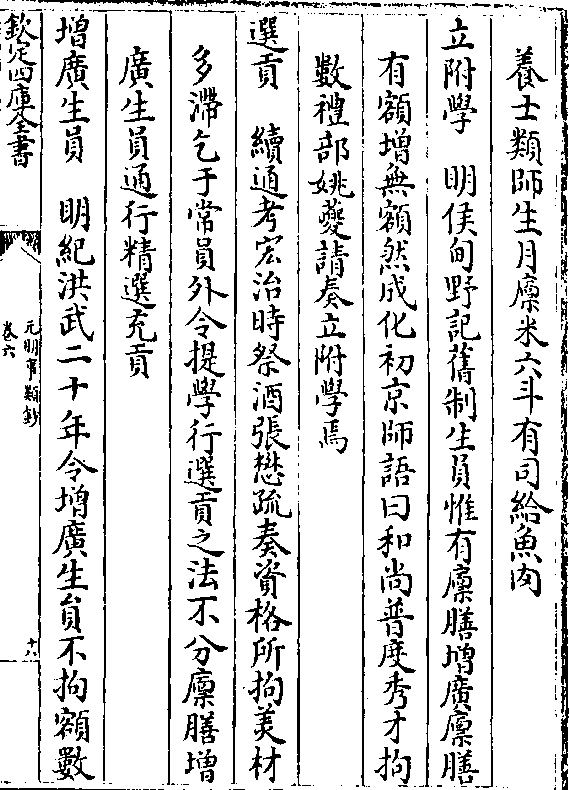 養士類師生月廩米六斗有司給魚肉
立附學　明侯甸野記舊制生員惟有廩膳增廣廩膳
有額增無額然成化初京師語曰和尚普度秀才拘
數禮部姚夔請奏立附學焉
選貢　續通考宏治時祭酒張懋疏奏資格所拘美材
多滯乞于常員外令提學行選貢之法不分廩膳增
廣生員通行精選充貢
增廣生員　明紀洪武二十年令增廣生員不拘額數
欽定四庫全書
元明事類鈔
卷六
十六